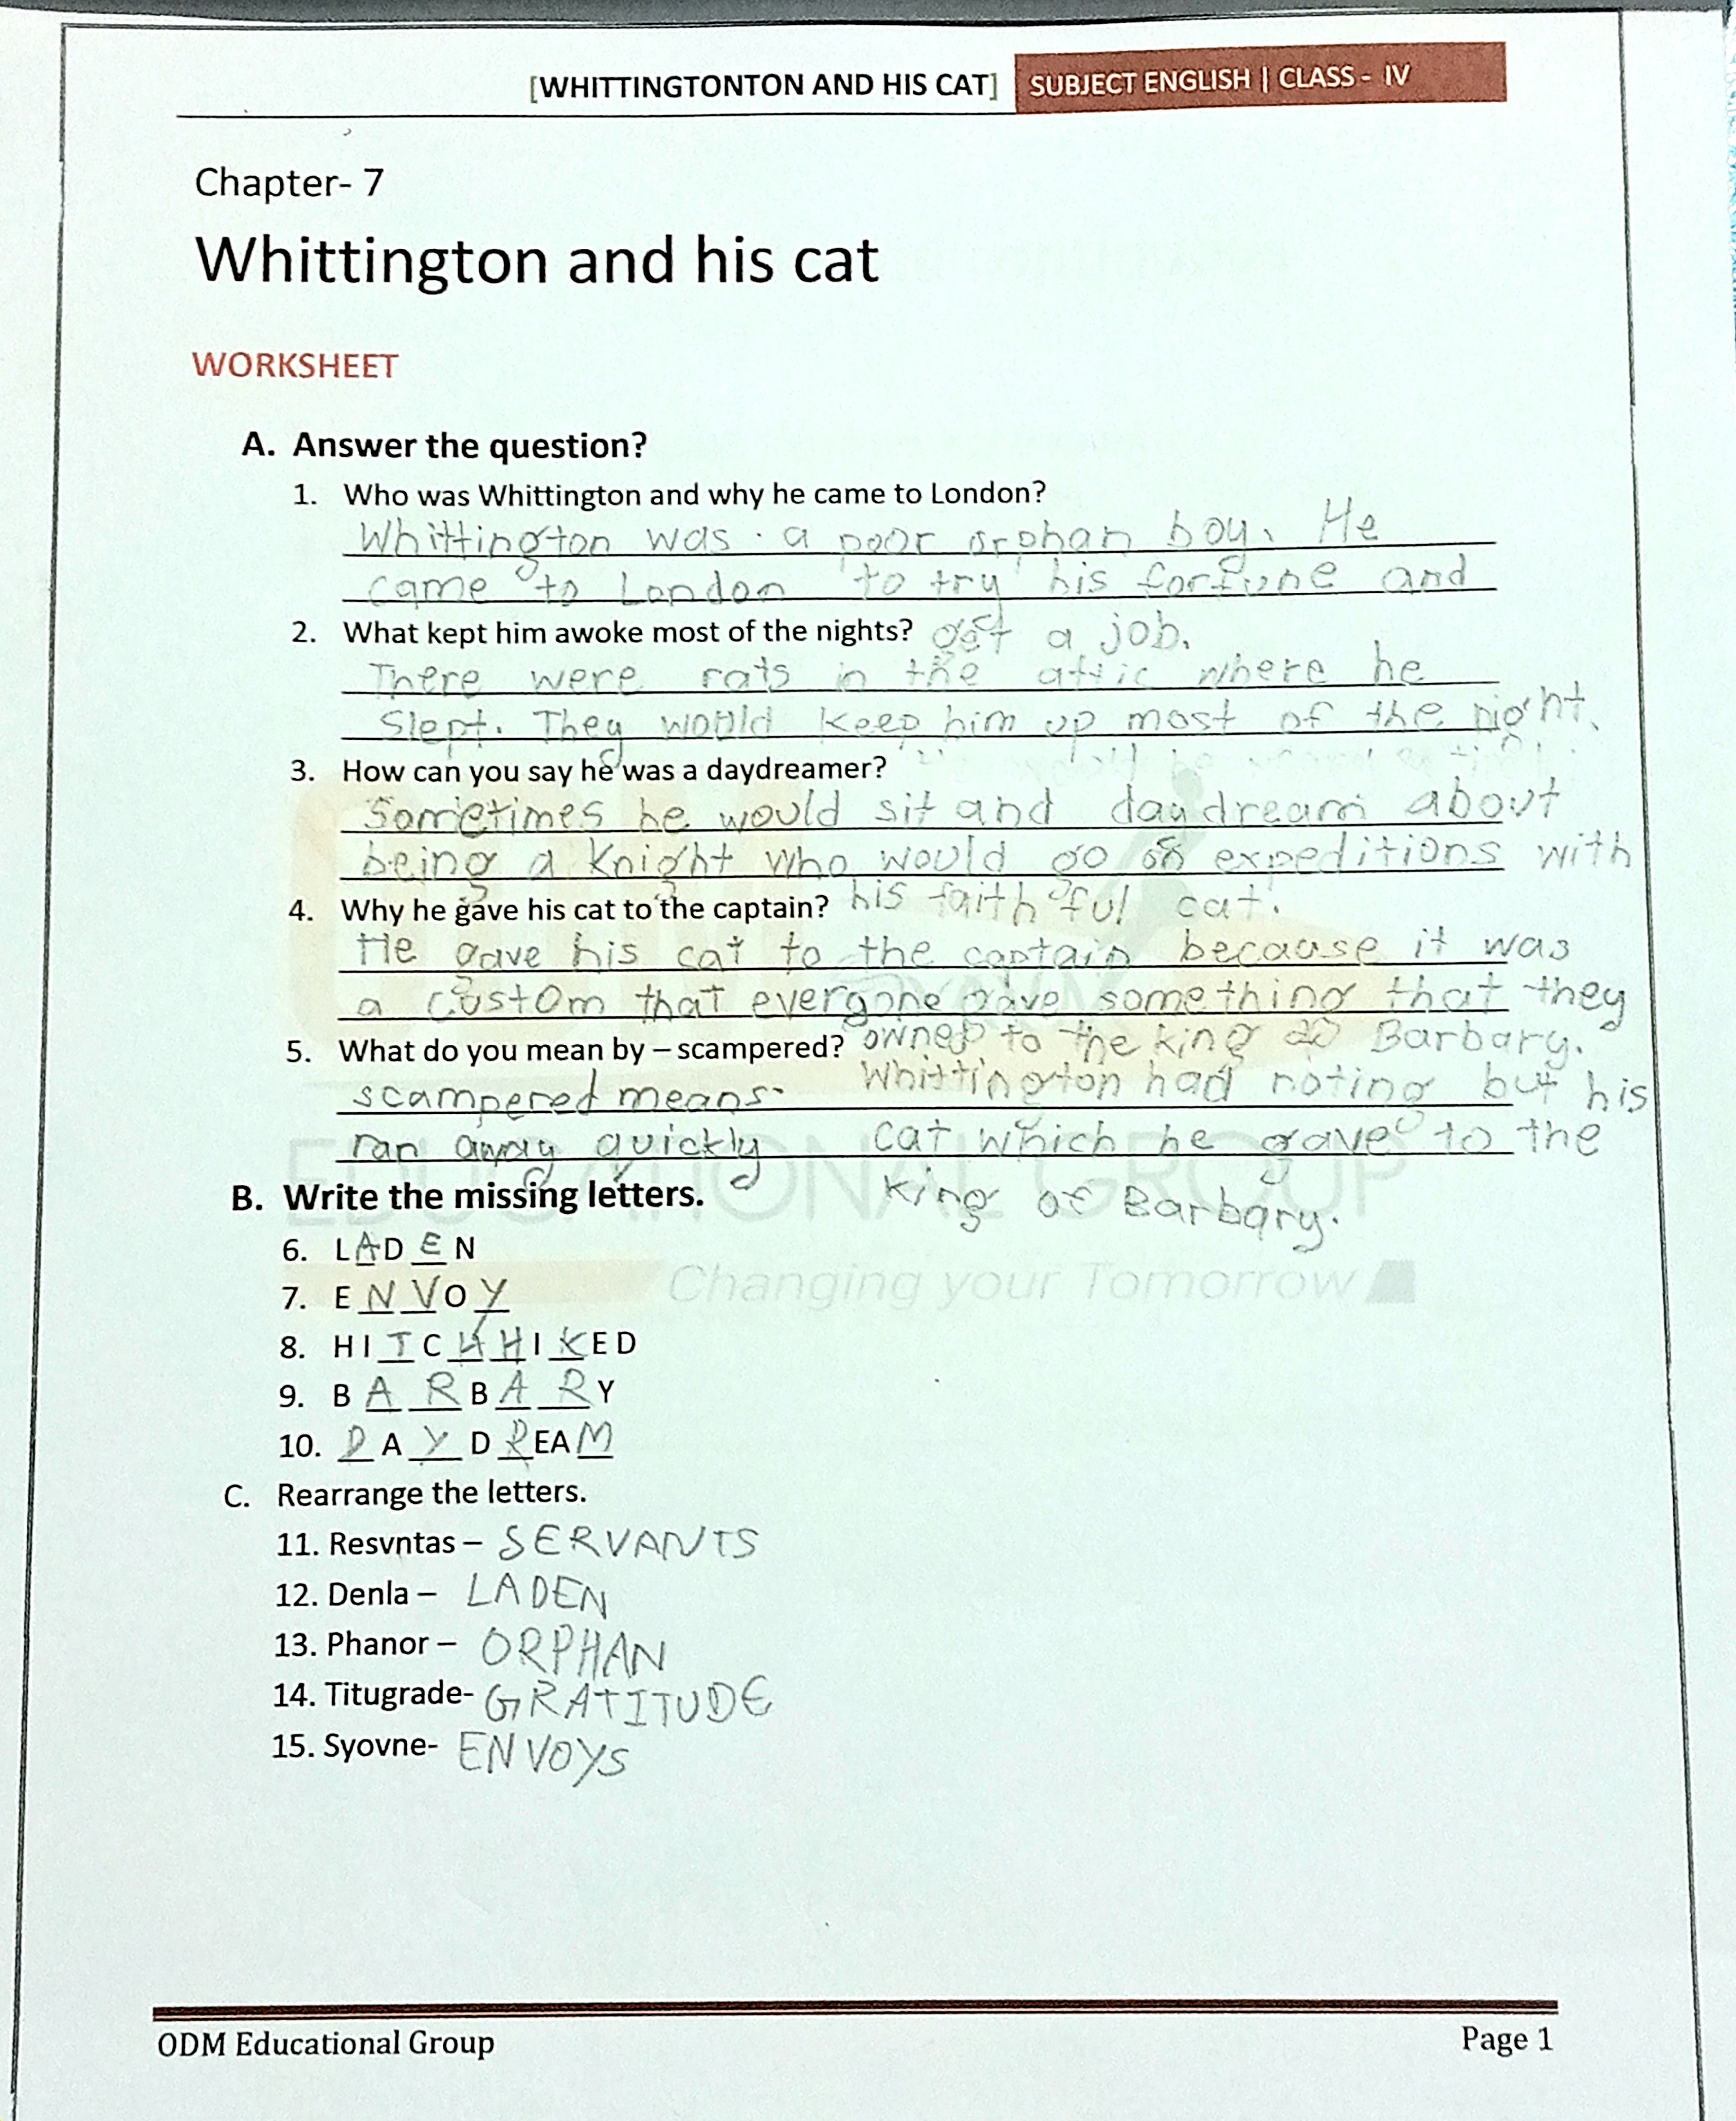 [WHITTINGTONTON AND HIS CAT] SUBJECT ENGLISH | CLASS - IV
Chapter- 7
Whittington and his cat
WORKSHEET
A. Answer the question?
1. Who was Whittington and why he came to London?
Whittington was a poor orphan boy. He
came to London to try his fortune and
get a job.
2. What kept him awoke most of the nights?
There were rats in the attic where he
Slept. They would keep him up most of the night.
3. How can you say he was a daydreamer?
Sometimes he would sit and daydream about
being a Knight who would go on expeditions with
his faithful cat.
4. Why he gave his cat to the captain?
He gave his cat to the captain because it was
a custom that everyone gave something that they
owned to the king of Barbary.
Whittington had noting but his
cat which he gave to the
King of Barbary.
5. What do you mean by – scampered?
scampered means
ran away quickly
B. Write the missing letters.
6. LADEN
7. ENVOY
8. HITCHHIKED
9. BARBARY
10. DAYDREAM
C. Rearrange the letters.
11. Resvntas – SERVANTS
12. Denla – LADEN
13. Phanor – ORPHAN
14. Titugrade- GRATITUDE
15. Syovne- ENVOYS
EDUCATIONAL GROUP
Changing your Tomorrow
ODM Educational Group
Page 1